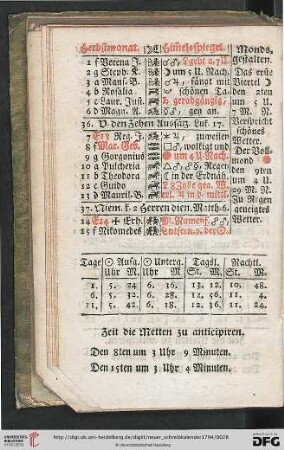 Herbstmonat. Himelsspiegel. Monds-
gestalten.
1 f Verena J.
2 g Steph. K. um 5 U. Nach. Das erste
3 a Mans. B. fängt mit Viertel
4 b Rosalia schönen Ta- den 2ten
5 c Laur. Just. gen um 5 U.
6 d Magn. A. 7 M. N.
36. V. den zehen Aussätz. Luk. 17. Verspricht
7 Reg. J. zuweilen schönes
8 f Mar. Geb. wolkigt und Wetter.
9 g Gorgonius um 4 U. Nach. Der Voll-
10 a Pulcheria Regen mond
11 b Theodora in der Erdnäh. den 9ten
12 c Guido um 4 U.
13 d Mauril. B. 29 M. N.
37. Niem. k. 2 Herren dien. Matth. 6. Zu Regen
14 Erh. geneigtes
15 f Nikomedes Wetter.
Tage Aufg. Unterg. Tagsl. Nachtl.
Uhr M. Uhr M. St. M. St. M.
1. 5. 24 6. 36. 13. 12. 10. 48.
6. 5. 32. 6. 28. 12. 56. 11. 4.
11. 5. 42. 6. 18. 12. 36. 11. 24.
Zeit die Metten zu anticipiren.
Den 8ten um 3 Uhr 9 Minuten.
Den 15ten um 3 Uhr 4 Minuten.
http://digi.ub.uni-heidelberg.de/diglit/neuer_schreibkalender1794/0028
© Universitätsbibliothek Heidelberg
UNIVERSITÄTS-
BIBLIOTHEK
HEIDELBERG
DFG